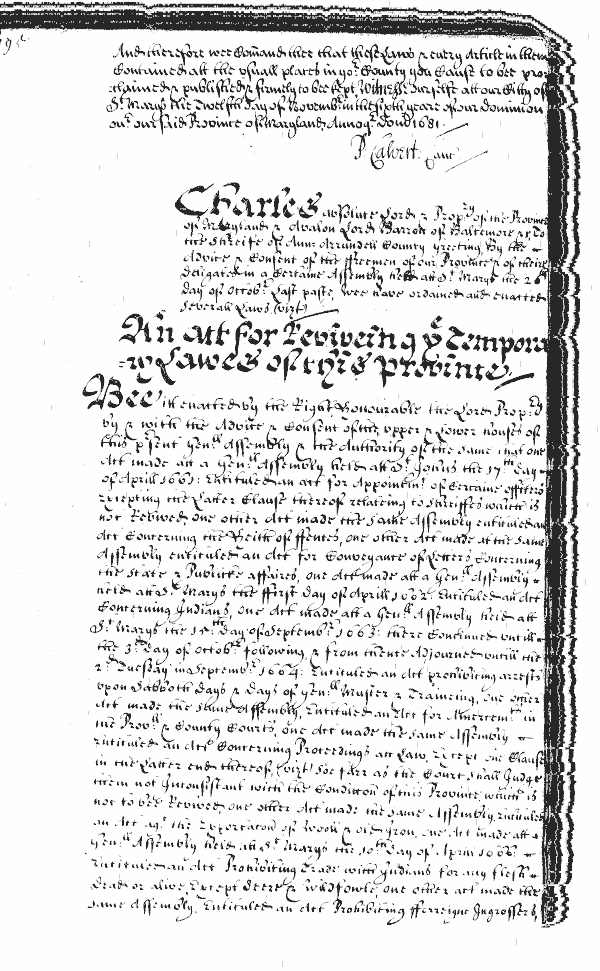 And therefore wee Comand thee that these Laws & every Article in them
Contained att the usuall places in yor. County you Cause to bee pro
claimed & published & firmely to bee kept, Witnesse ourselfe att our Citty of
St. Marys the Twelfth day of Novembr. in the sixth yeare of our dominion
over our said Province of Maryland Annoq. Domi 1681.
Calvert. Canc
Charles absolute Lord & Propry. of the Province
of Maryland & Avalon Lord Barron of Baltimore &c To
the Shreife of Ann: Arrundell County Greeting By the
Advice & Consent of the ffreemen of our Province & of their
deligated in a Certaine Assembly held att St. Marys the 26th
day of Octobr. Last paste, wee have ordained and enacted
severall Laws (vizt)
An Act for Reviveing ye Tempora
=ry Lawes of this Province
Bee itt enacted by the Right Honourable the Lord Proprd
by & with the Advice & Consent of the upper & Lower houses of
this psent Genll. Assembly & the Authority of the same that one
Act made att a Genll. Assembly held att St. Johns the 17th day
of Aprill 1661: Entituled an act for Appointmt. of Certaine officers
Excepting the Latter Clause thereof relateing to Shreiffes which is
not Revived, one other Act made the same Assembly entituled an
Act Concerning the of ffences, one other Act made at the same
Assembly entituled an Act for Conveyance of Letters Concerning
the State & Publicke affaires, one Act made att a Genll. Assembly
held att St. Marys the ffirst day of Aprill 1662. Entituled an Act
Concerning Indians, one Act made att a Genll. Assembly held att
St. Marys the 15th day of Septembr. 1663: there Continued untill
the 3d. day of Octobr. following, & from thence Adjourned untill the
2d. Tuesday in Septembr. 1664: Entituled an Act prohibiting arrests
upon Sabboth days & days of Genll. Muster & Traineing, one other
Act made the same Assembly, Entituled an Act for Amercemts. in
the Provll. & County Courts, one Act made the same Assembly
Entituled an Act Concerning Proceedings att Law, Except one Clause
in the Latter end thereof, (vizt) soe farr as the Court shall Judge
them not Inconsistant with the Condition of this Province, which is
not to bee Revived, one other Act made the same Assembly, entituled
an Act agt. the Exportacon of Wooll & old Iron, one Act made att a
Genll. Assembly held att St. Marys the 10th day of Aprill 1666.
Entituled an Act Prohibiting Trade with Indians for any flesh
dead or alive, Except deere & Wildfowle, one other act made the
same Assembly, Entituled an Act Prohibiting fforreigne Ingrossers,